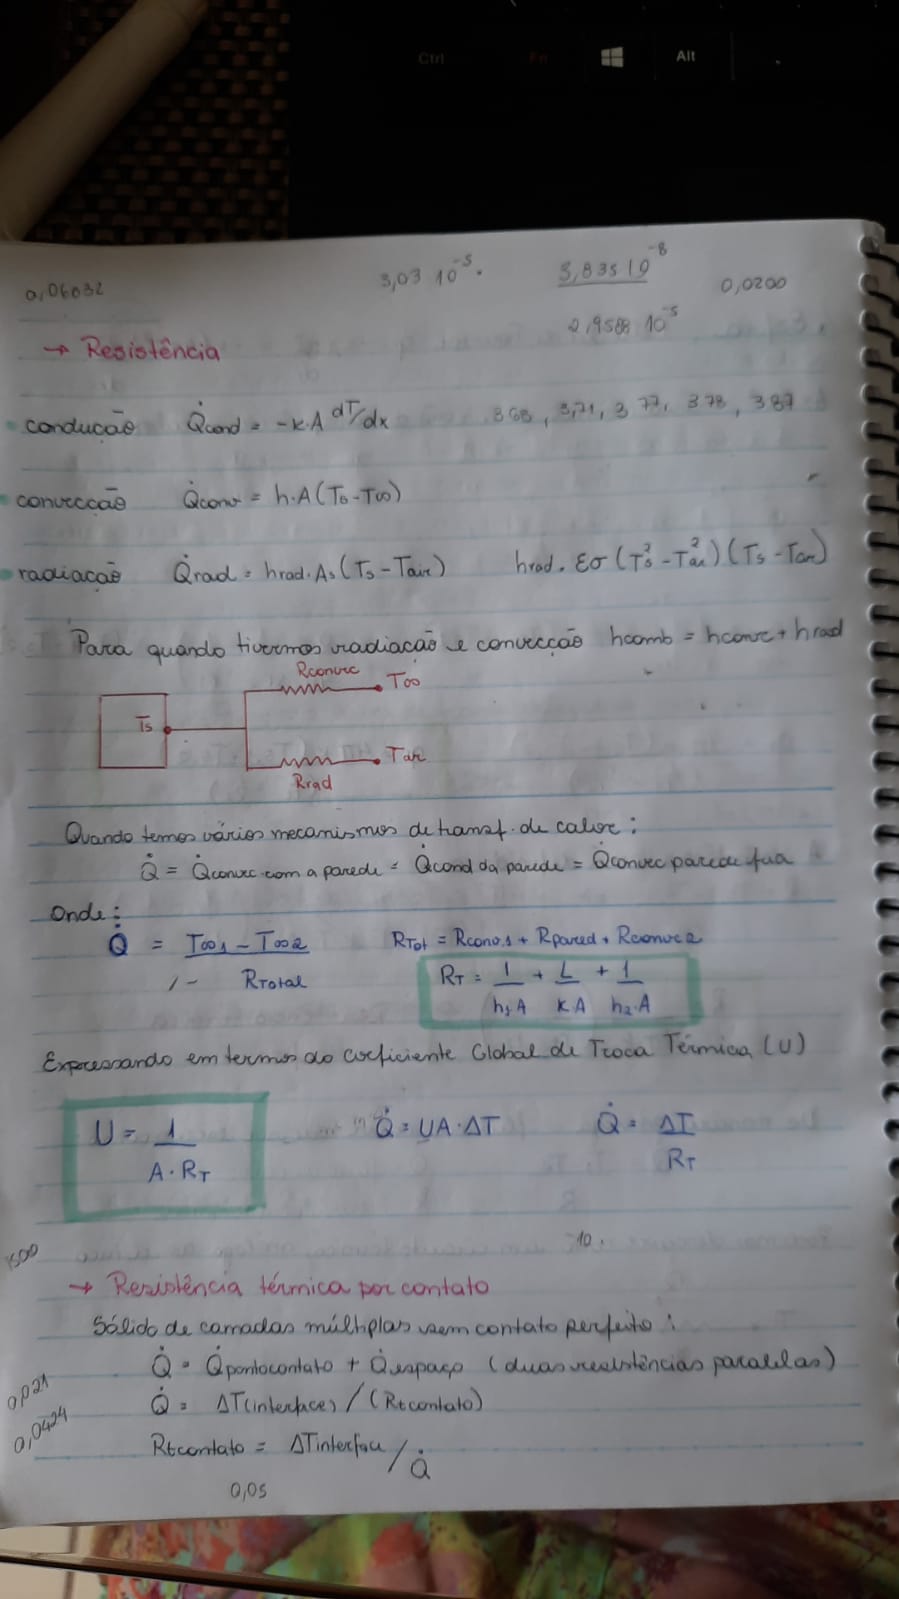 Ctrl Fn Alt
0,06032 3,03 10^-5. 5,835 10^-8 0,0200
2,9588 10^-5
→ Resistência
condução Q̇cond = -K.A dT/dx 368, 3,71, 3 77, 3 78, 387
convecção Q̇conv = h.A(Ts-T∞)
radiação Q̇rad = hrad.As(Ts-Tair) hrad. Eσ(Ts²-Tar²)(Ts-Tar)
Para quando tivermos radiação e convecção hcomb = hconv + hrad
Rconvec T∞
Ts
Tar
Rrad
Quando temos vários mecanismos de transf. de calor:
Q̇ = Q̇convec com a parede = Q̇cond da parede = Q̇convec parede fria
Onde:
Q̇ = T∞1 - T∞2 RTot = Rconv.1 + Rpared + Rconvec2
RTotal
RT = 1 + L + 1
h1.A K.A h2.A
Expressando em termos do coeficiente Global de Troca Térmica (U)
U = 1 Q̇ = UA.ΔT Q̇ = ΔT
A.RT RT
10.
1500
→ Resistência térmica por contato
Sólido de camadas múltiplas sem contato perfeito:
Q̇ = Q̇pontocontato + Q̇espaço (duas resistências paralelas)
0,021
Q̇ = ΔT(interface) / (Rtcontato)
0,0424
Rtcontato = ΔTinterface / Q̇
0,05